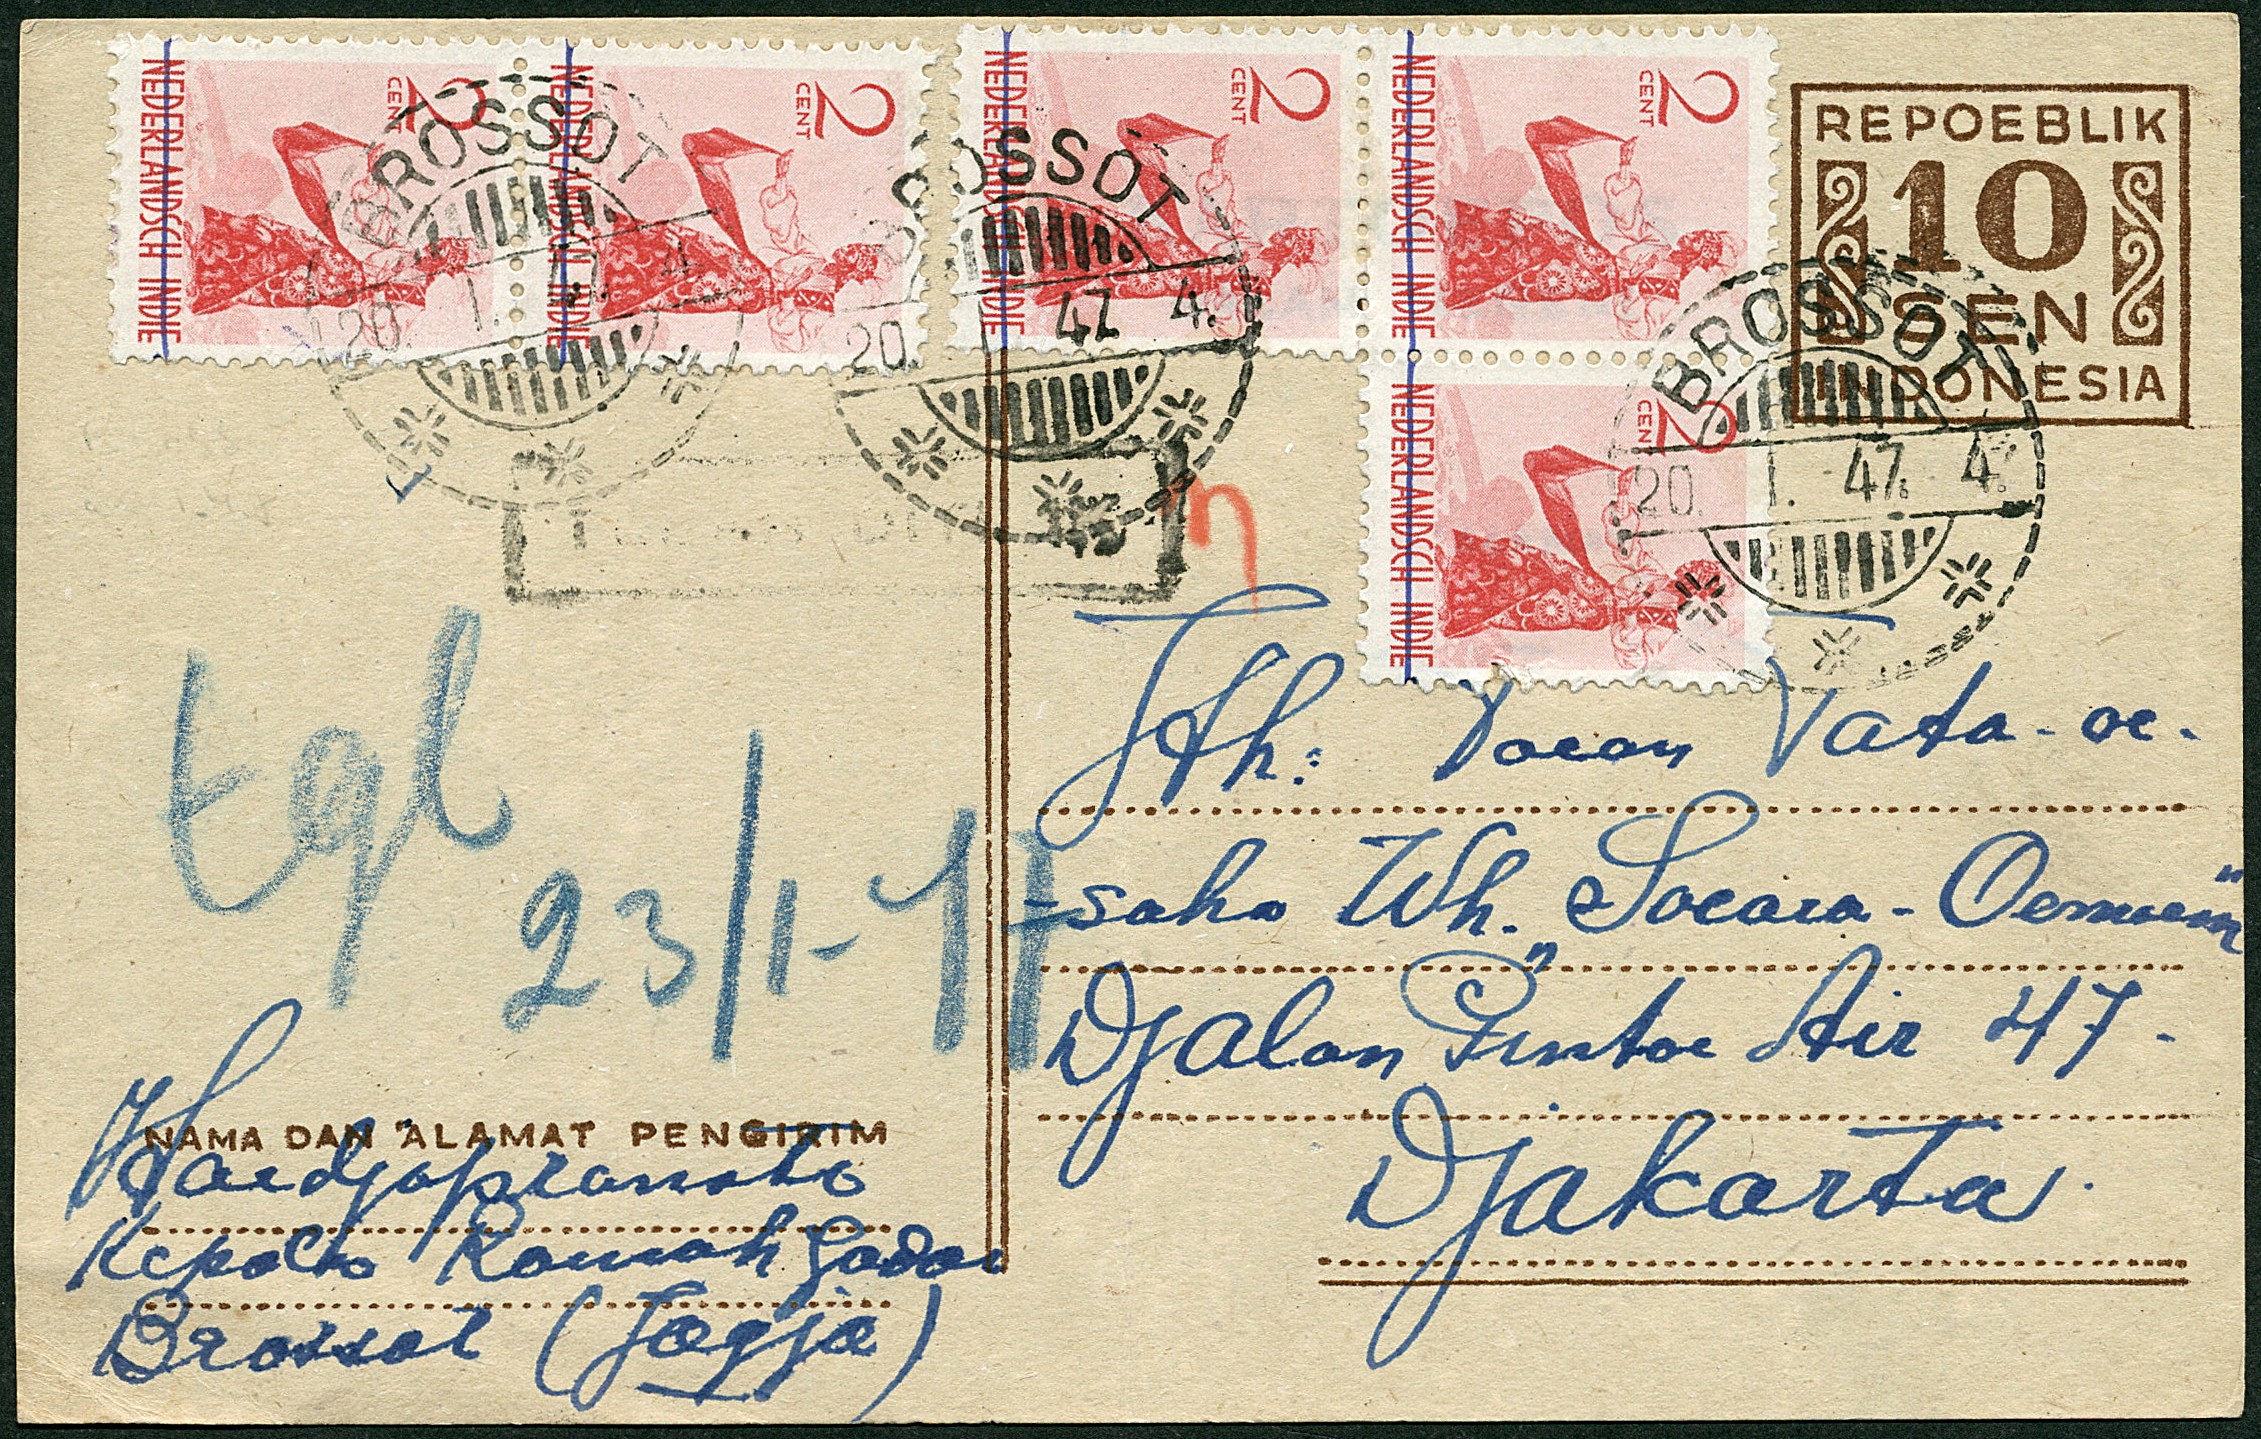 2 CENT NEDERLANDSCH INDIE
2 CENT NEDERLANDSCH INDIE
2 CENT NEDERLANDSCH INDIE
2 CENT NEDERLANDSCH INDIE
2 CENT NEDERLANDSCH INDIE
REPOEBLIK
10
SEN
INDONESIA
BROSSOT
20. 1. 47. 4.
BROSSOT
20. 47 4.
BROSSOT
20. 1. 47. 4.
Jth: Toean Tata-oe-
-saha Wh. „Soeara-Oemoem"
Djalan Pintoe Air 47-
Djakarta.
tgl
23/1-47
NAMA DAN ALAMAT PENGIRIM
Hardjopranoto
Kepala Roemah Gadai
Brossot (Jogja)